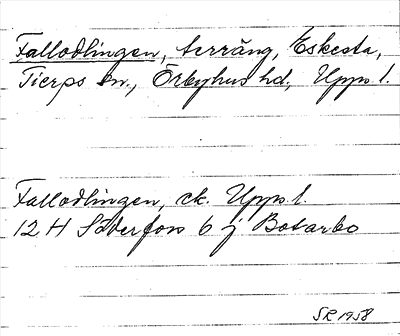 Fallodlingen, terräng, Eskesta,
Tierps sn., Örbyhus hd, Upps l.
Fallodlingen, ek. Upps l.
12 H Söderfors 6 j Botarbo
SR 1958